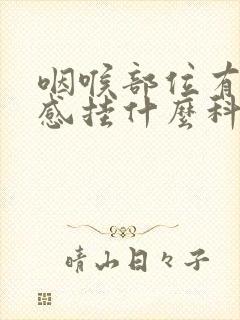 咽喉部位有
感挂什麼科
晴山日々子